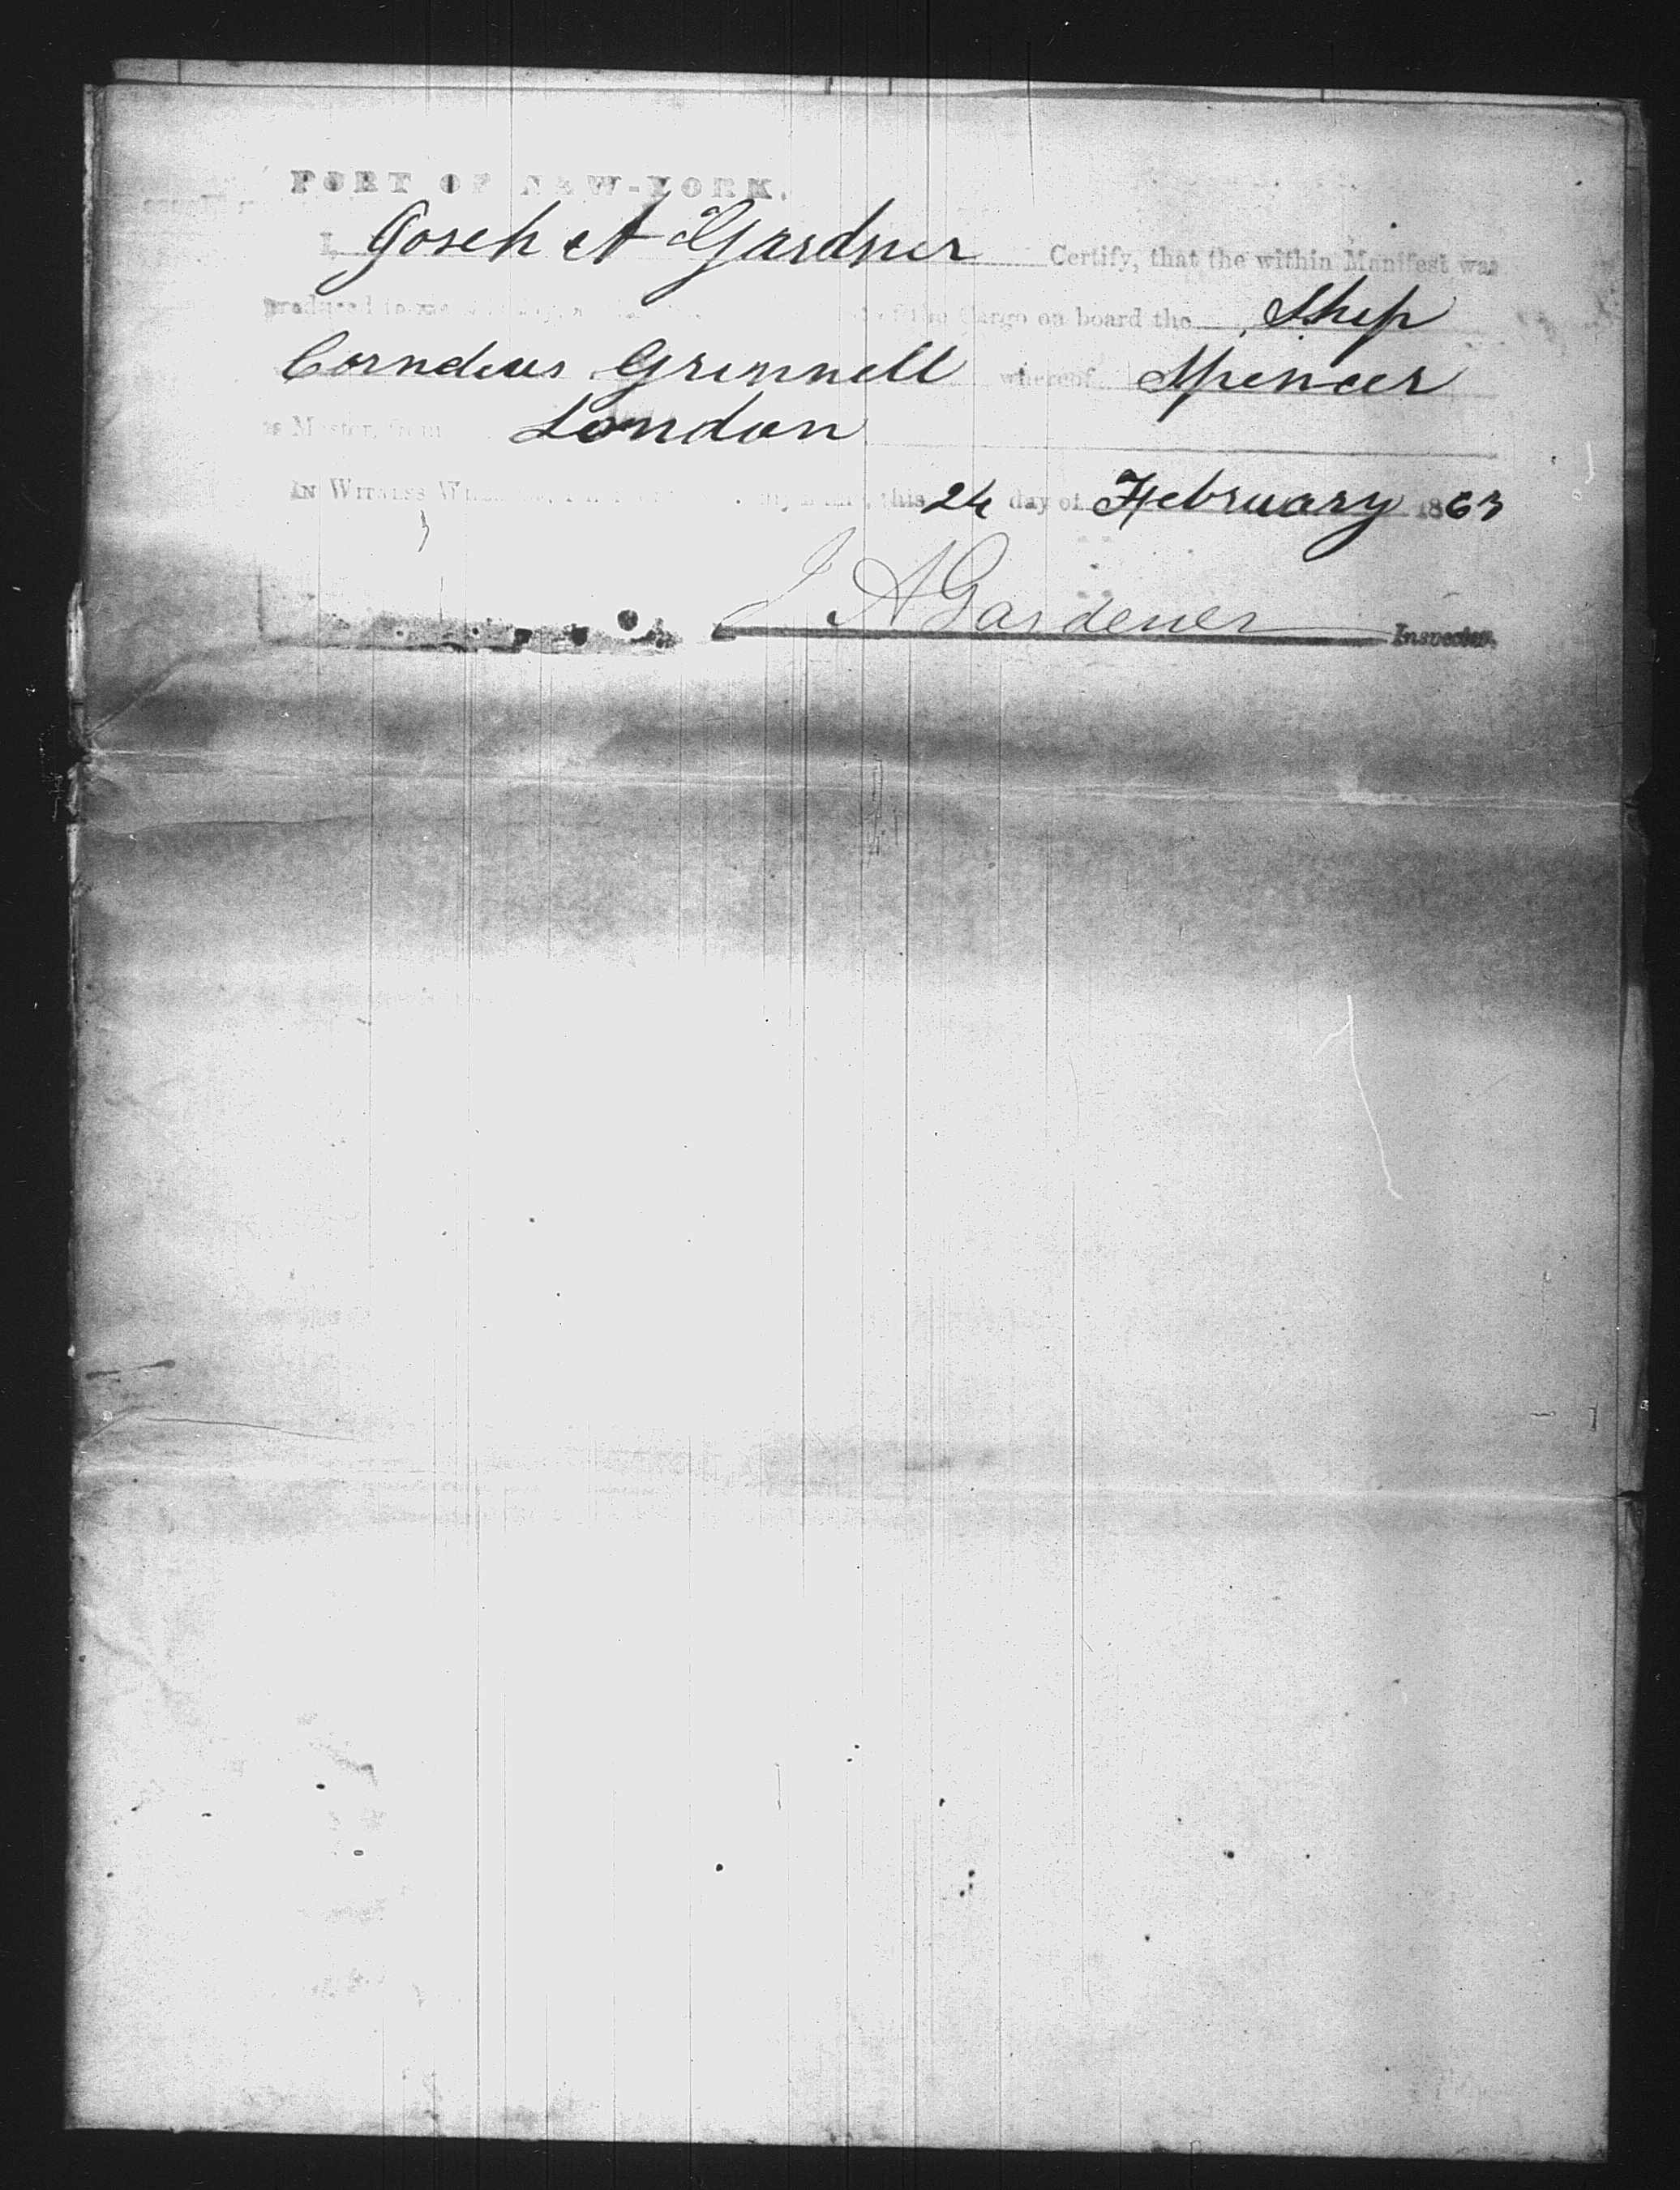 PORT OF NEW-YORK.
I, Joseh A Gardner Certify, that the within Manifest was
produced to me of the Cargo on board the Ship
Cornelius Grinnell whereof Spencer
as Master, from London
IN WITNESS this 24 day of February 1863
J A Gardener Inspector.